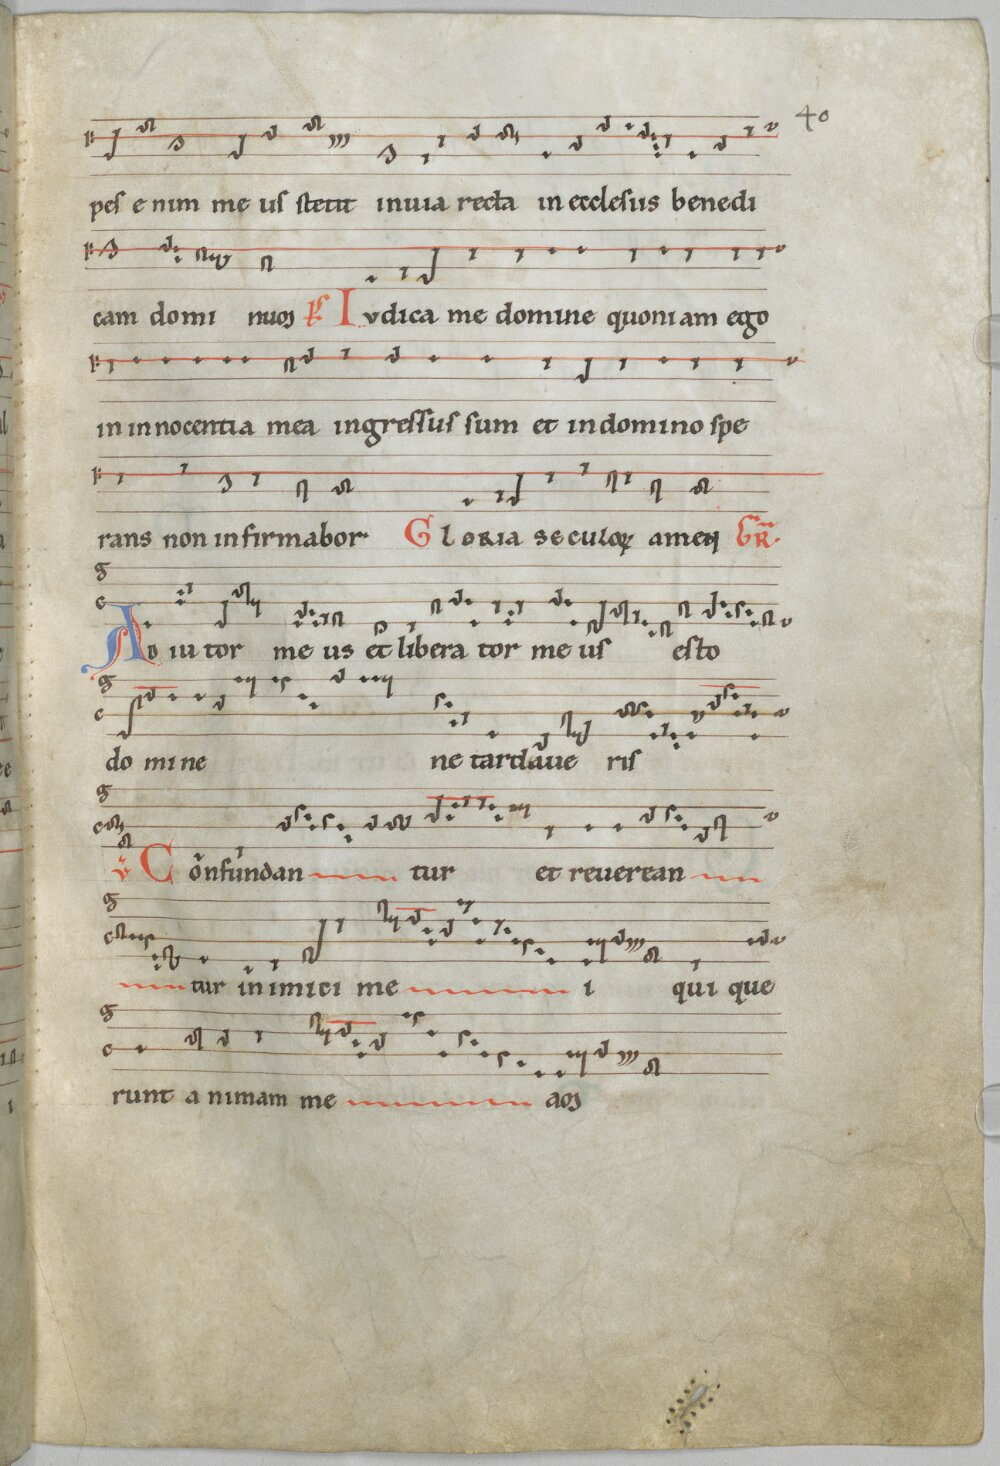 40
pes enim meus stetit inuia recta in ecclesiis benedi
cam domi num Ps Iudica me domine quoniam ego
in innocentia mea ingressus sum et indomino spe
rans non infirmabor Gloria seculoꝝ amen GR.
Adiutor meus et liberator meus esto
domine ne tardaue ris
V Confundan tur et reuerean
tur inimici me i qui que
runt animam me am